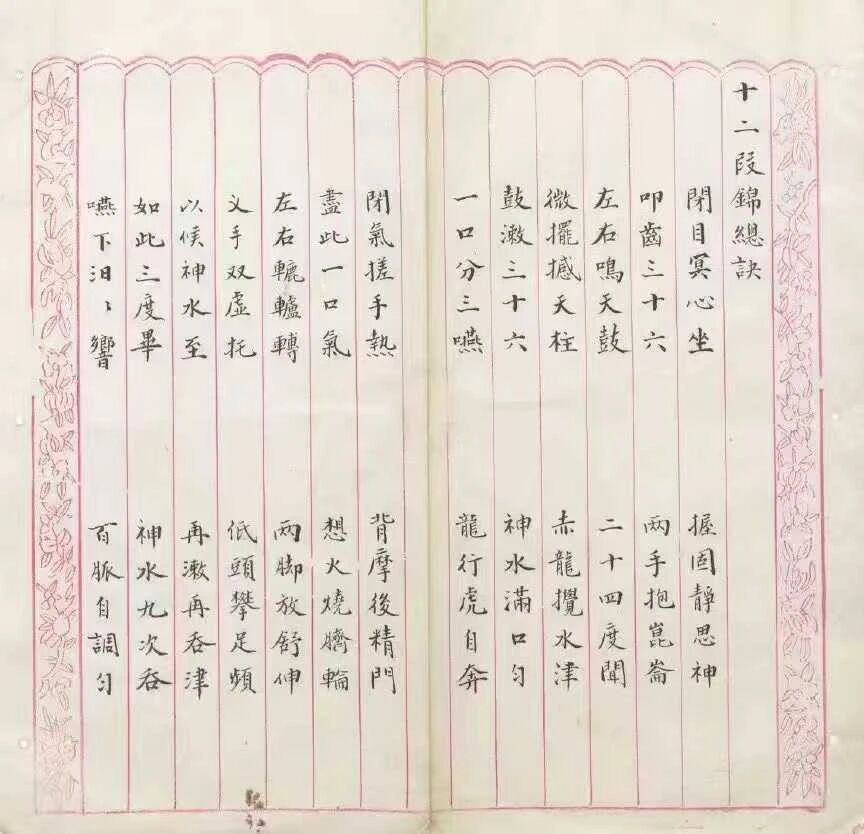 十二段錦總訣
閉目冥心坐 握固靜思神
叩齒三十六 兩手抱崑崙
左右鳴天鼓 二十四度聞
微擺撼天柱 赤龍攪水津
鼓漱三十六 神水滿口勻
一口分三嚥 龍行虎自奔
閉氣搓手熱 背摩後精門
盡此一口氣 想火燒臍輪
左右轆轤轉 兩脚放舒伸
义手双虛托 低頭攀足頻
以候神水至 再漱再吞津
如此三度畢 神水九次吞
嚥下汩〻響 百脈自調勻